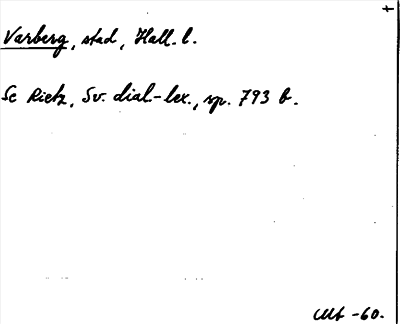 Varberg, stad, Hall. l.
Se Rietz, Sv. dial.-lex., sp. 793 b.
-60.